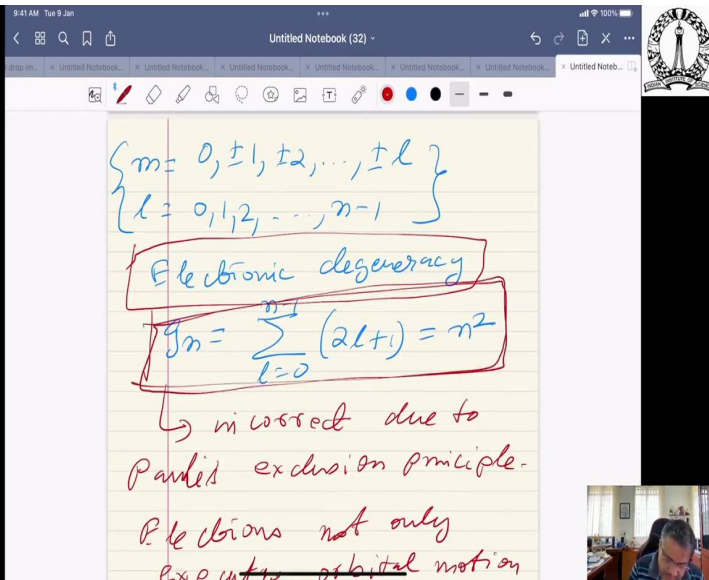 9:41 AM Tue 9 Jan
100%
Untitled Notebook (32)
drop im... × Untitled Notebook... × Untitled Notebook... × Untitled Notebook... × Untitled Notebook... × Untitled Notebook... × Untitled Notebook... × Untitled Noteb...
{m = 0, ±1, ±2, ..., ±l
l = 0, 1, 2, ..., n-1}
Electronic degeneracy
gn = Σ_{l=0}^{n-1} (2l+1) = n²
↳ incorrect due to
Paulis exclusion principle.
Electrons not only
execute orbital motion